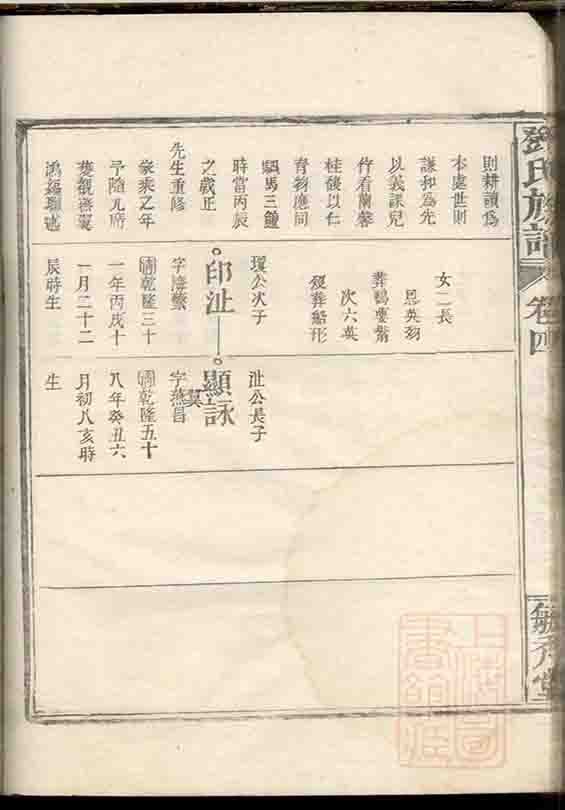 氏族譜
卷四
堂
則耕讀為
本處世則
謙和為先
以義課兒
竹看蘭馨
桂馥以仁
育物應同
駟馬三鐘
時當丙辰
之歲正
先生重修
家乘乙年
予隨几席
獲觀燕翼
鴻謨聊述
女二長
恩英
葬鴨婆
次六英
葬船形
公次子
印沚
字濟繁
清乾隆三十
一年丙戌十
一月二十二
辰時生
沚公長子
顯詠
字燕昌
清乾隆五十
八年癸丑六
月初八亥時
生
上海圖
書館藏